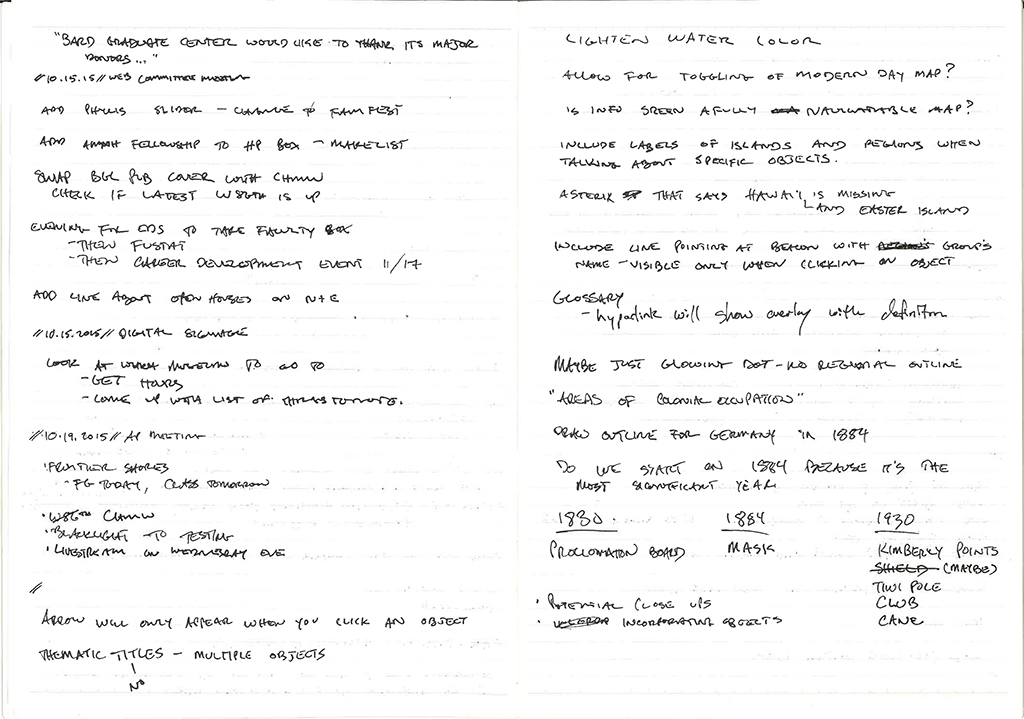 "BARD GRADUATE CENTER WOULD LIKE TO THANK ITS MAJOR
DONORS..."
//10.15.15// WEB COMMITTEE MEETING
ADD PHYLLIS SLIDER – CHANGE TO FAMFEST
ADD FELLOWSHIP TO HP BOX – MAKE LIST
SWAP BGC PUB COVER WITH CHMW
CHECK IF LATEST W86TH IS UP
EVENING FOR EDS TO TAKE FACULTY BOX
- THEN FUSTAT
- THEN CAREER DEVELOPMENT EVENT 11/17
ADD LINE ABOUT OPEN HOUSES ON N+E
//10.15.2015// DIGITAL SIGNAGE
LOOK AT WHICH MUSEUM TO GO TO
- GET HOURS
- COME UP WITH LIST OF THINGS TO NOTE.
//10.19.2015// AP MEETING
· FRONTIER SHORES
- FG TODAY, CLASS TOMORROW
· W86TH CHMW
· BLACKLIGHT TO TESTING
· LIVESTREAM ON WEDNESDAY EVE
//
ARROW WILL ONLY APPEAR WHEN YOU CLICK AN OBJECT
THEMATIC TITLES – MULTIPLE OBJECTS
NO
LIGHTEN WATER COLOR
ALLOW FOR TOGGLING OF MODERN DAY MAP?
IS INFO SREEN A FULLY NAVIGATABLE MAP?
INCLUDE LABELS OF ISLANDS AND REGIONS WHEN
TALKING ABOUT SPECIFIC OBJECTS.
ASTERIX THAT SAYS HAWAI'I IS MISSING
AND EASTER ISLAND
INCLUDE LINE POINTING AT BEACON WITH GROUP'S
NAME – VISIBLE ONLY WHEN CLICKING ON OBJECT
GLOSSARY
- hyperlink will show overlay with definition
MAYBE JUST GLOWING DOT – NO REGIONAL OUTLINE
"AREAS OF COLONIAL OCCUPATION"
DRAW OUTLINE FOR GERMANY IN 1884
DO WE START ON 1884 BECAUSE IT'S THE
MOST SIGNIFICANT YEAR
1830. 1884 1930
PROCLOMATION BOARD MASK KIMBERLY POINTS
SHIELD (MAYBE)
TIWI POLE
· POTENTIAL CLOSE UPS CLUB
· INCORPORATING OBJECTS CANE